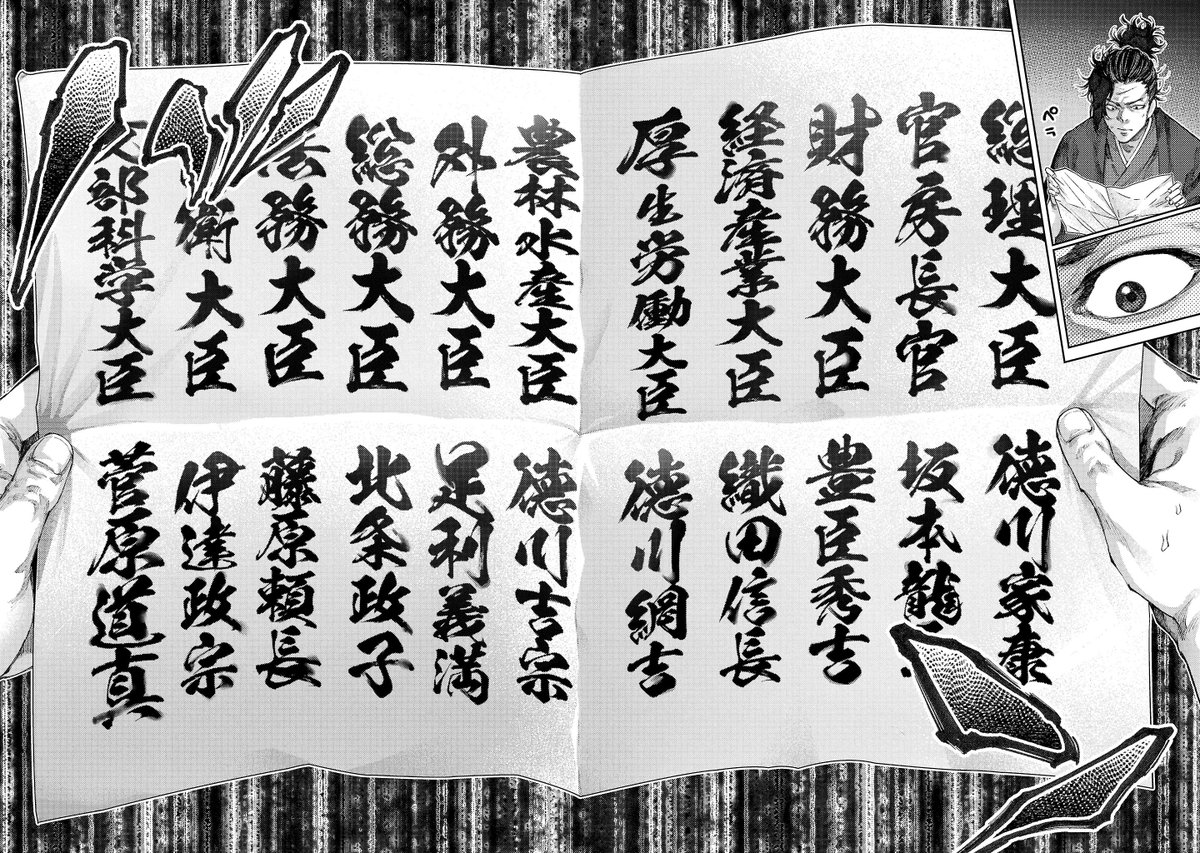 総理大臣
徳川家康
官房長官
坂本龍
財務大臣
豊臣秀吉
経済産業大臣
織田信長
厚生労働大臣
徳川綱吉
農林水産大臣
徳川吉宗
外務大臣
足利義満
総務大臣
北条政子
法務大臣
藤原頼長
衛大臣
伊達政宗
部科学大臣
菅原道真